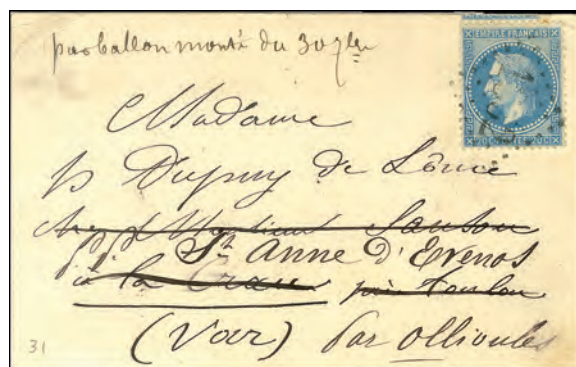 par ballon monté du 30 7bre
EMPIRE FRANÇAIS
20 C 20 C
Madame
Dupuy de Lôme
Sanson
St Anne D'Evenos
à la Crau près Toulon
(Var) par Ollioules
31